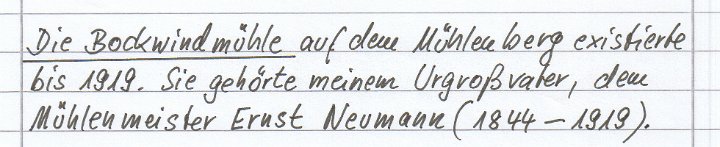 Die Bockwindmühle auf dem Mühlenberg existierte
bis 1919. Sie gehörte meinem Urgroßvater, dem
Mühlenmeister Ernst Neumann (1844 – 1919).